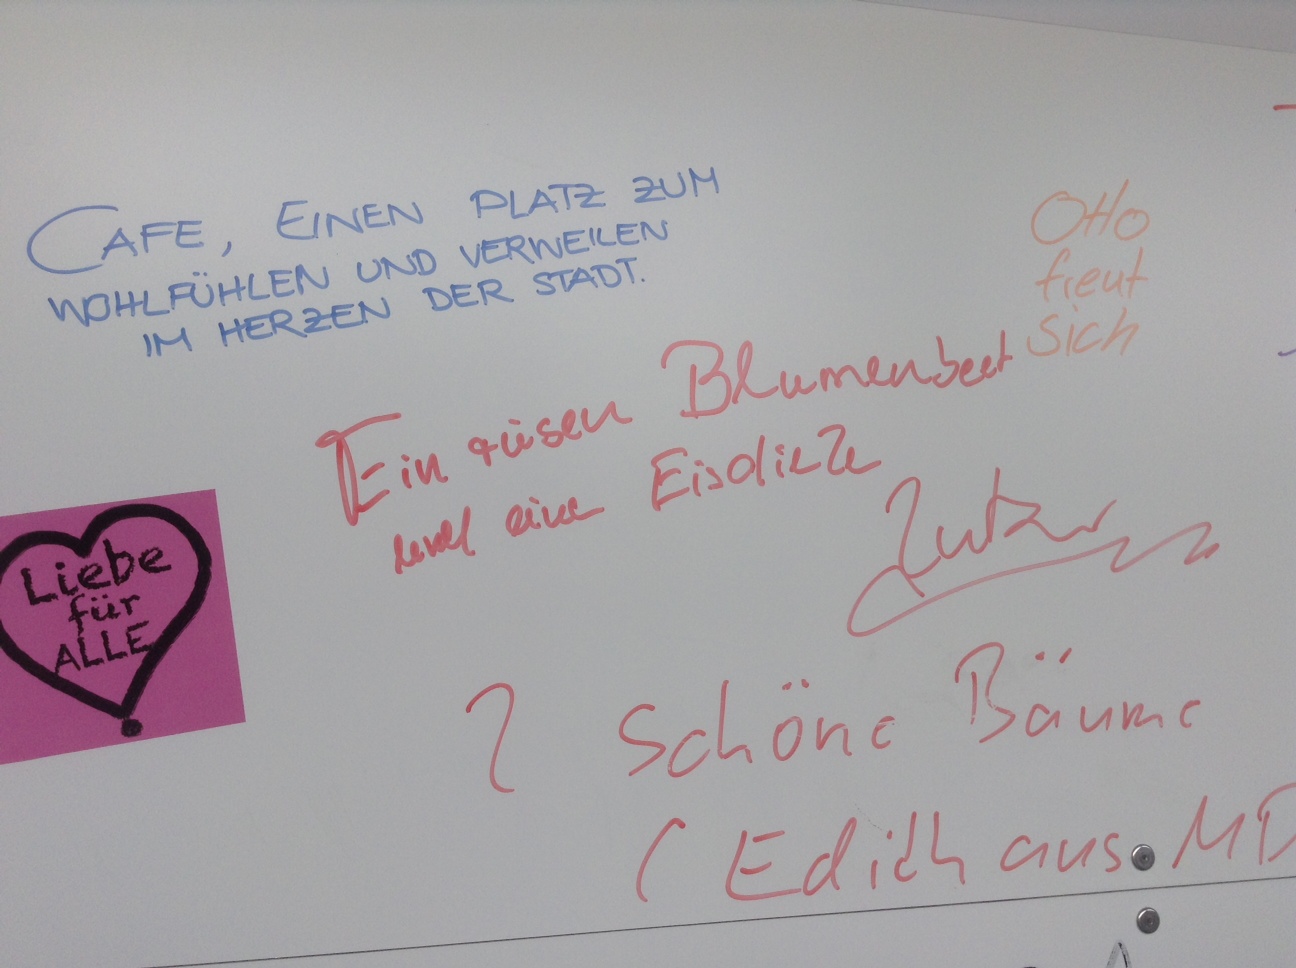 CAFE, EINEN PLATZ ZUM
WOHLFÜHLEN UND VERWEILEN
IM HERZEN DER STADT.
Otto
freut
sich
Ein riesen Blumenbeet
und eine Eisdiele
Liebe
für
ALLE
2 Schöne Bäume
(Edith aus MD